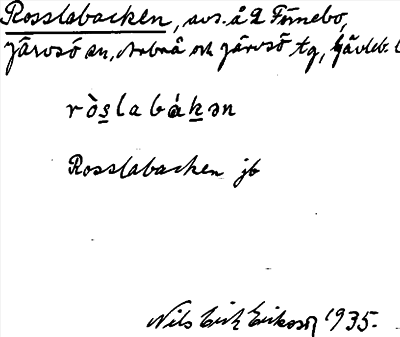 Rosslabacken, avs. å 2 Förnebo,
Järvsö sn, Arbrå och Järvsö tg, Gävleb. l
ròs̱labáḵən
Rosslabacken jb
Nils Erik Eriksson 1935.